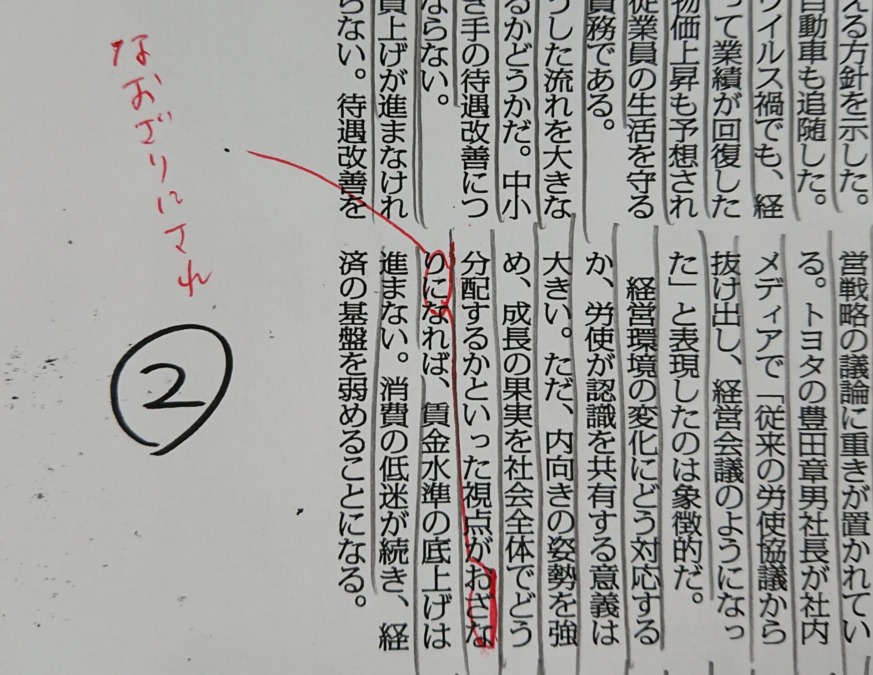 える方針を示した。
自動車も追随した。
ウイルス禍でも、経
って業績が回復した
物価上昇も予想され
従業員の生活を守る
責務である。
うした流れを大きな
るかどうかだ。中小
き手の待遇改善につ
ならない。
賃上げが進まなけれ
らない。待遇改善を
営戦略の議論に重きが置かれてい
る。トヨタの豊田章男社長が社内
メディアで「従来の労使協議から
抜け出し、経営会議のようになっ
た」と表現したのは象徴的だ。
経営環境の変化にどう対応する
か、労使が認識を共有する意義は
大きい。ただ、内向きの姿勢を強
め、成長の果実を社会全体でどう
分配するかといった視点がおざな
りになれば、賃金水準の底上げは
進まない。消費の低迷が続き、経
済の基盤を弱めることになる。
なおざりにされ
②